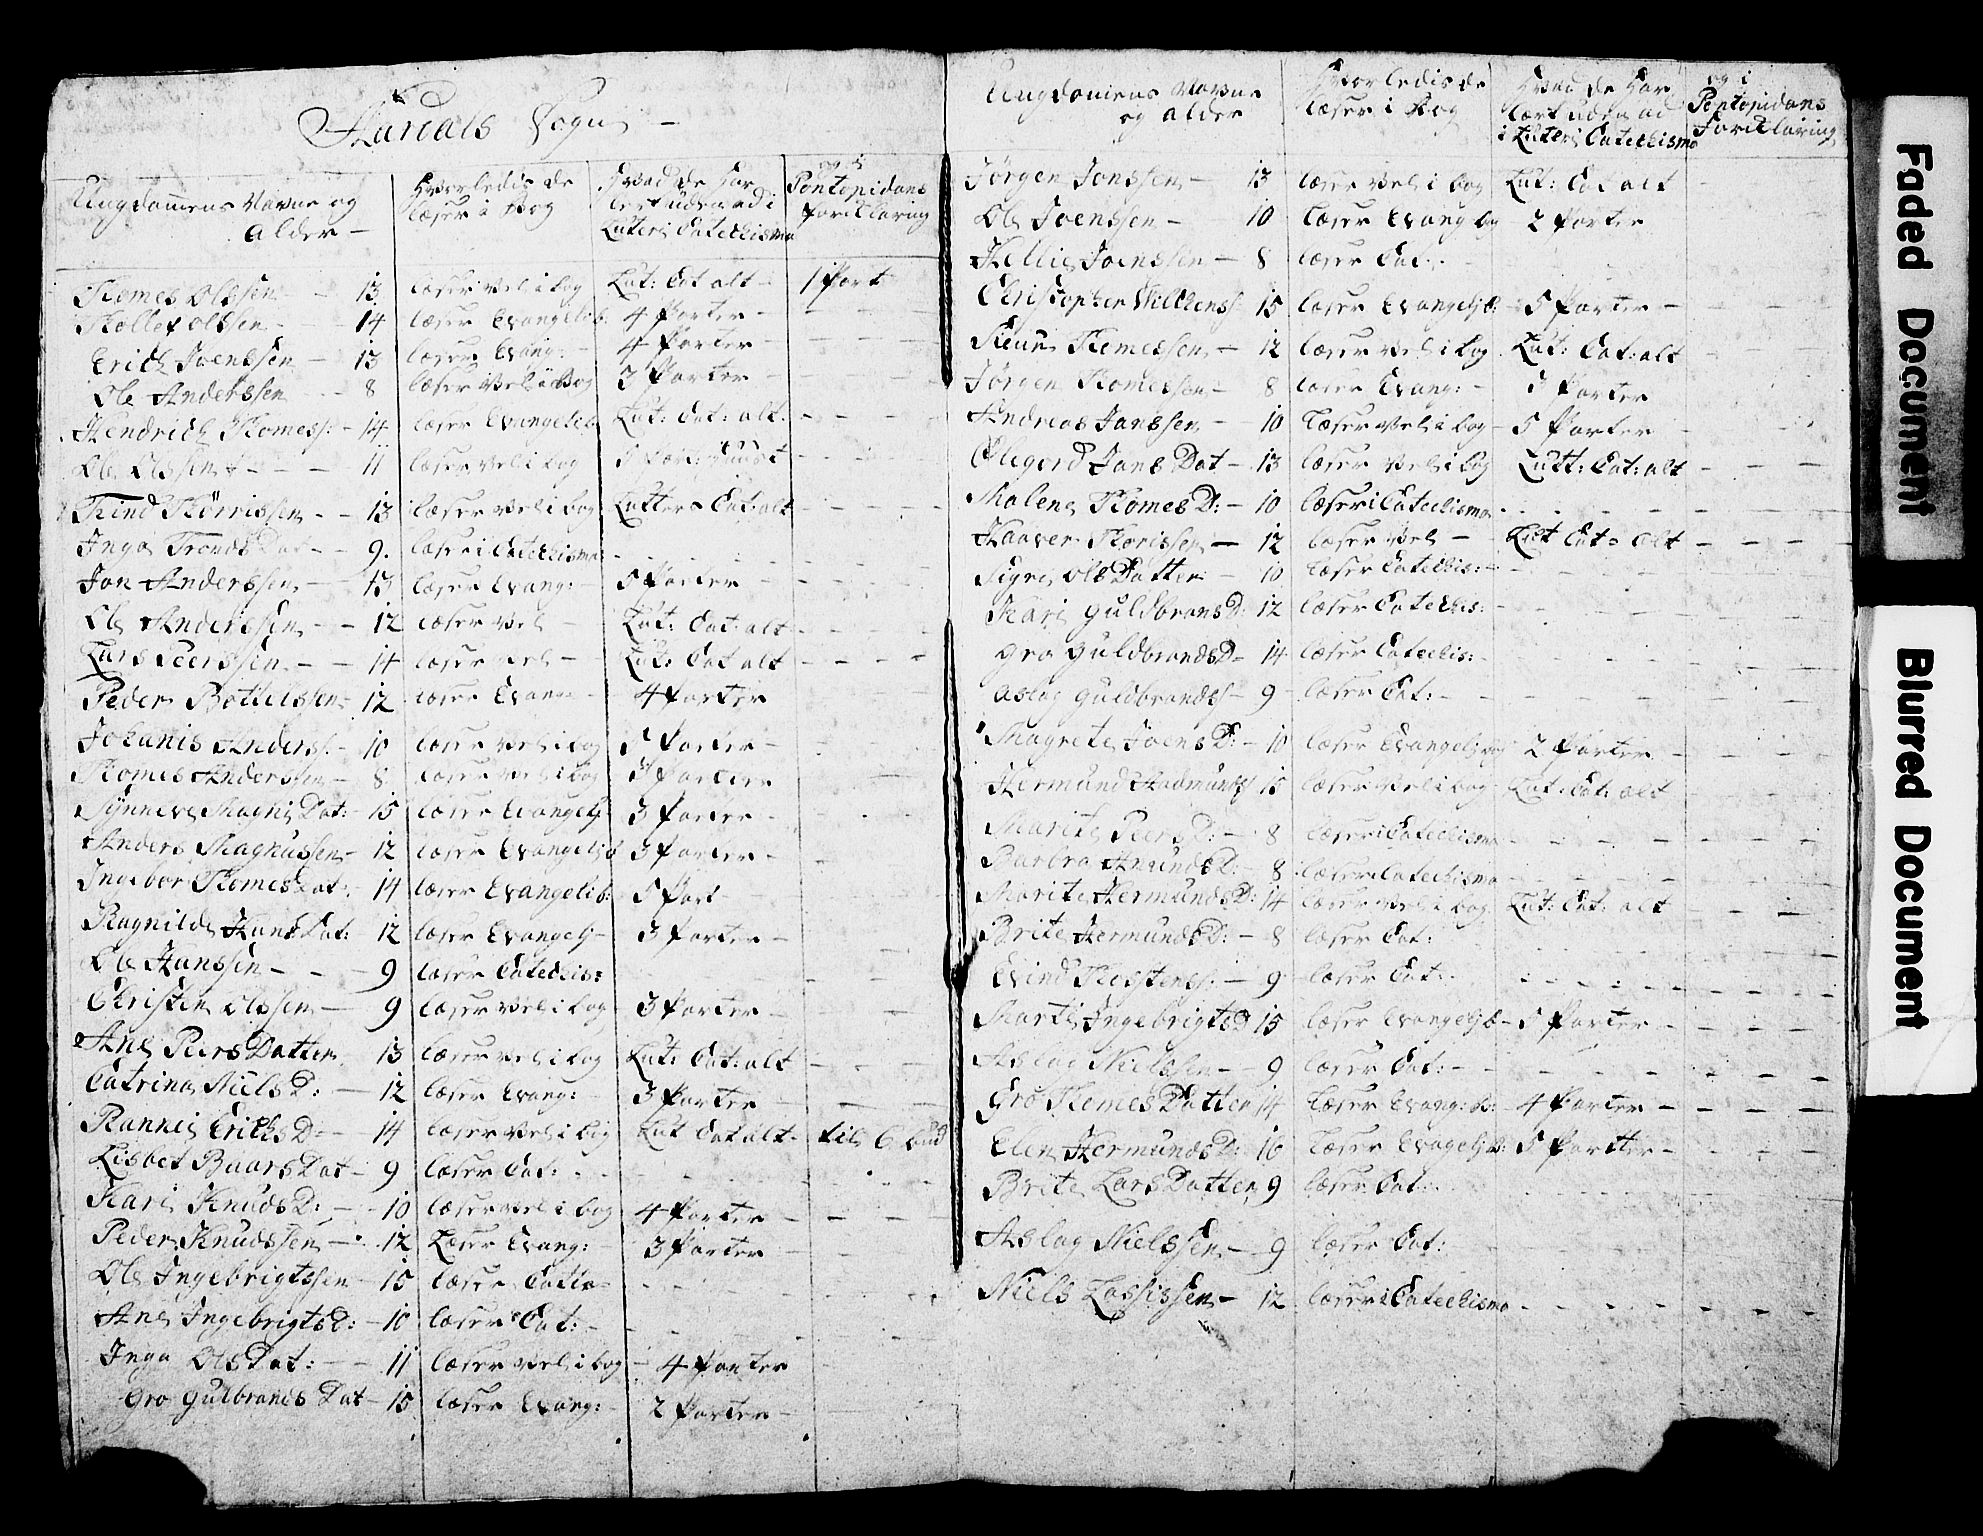 Hardals Sogn
Ungdommens Navne og Alder
Hvorledis de læser i Bog
Hvad de har lert udenad i Luteri Catechismo
og i Pontopidans forklaring
Tomes Olssen 13 læser vel i bog Lut: Cat alt 1 Part
Tollef olssen 14 læser Evangelib: 4 Parter
Erich Joenssen 13 læser Evang: 4 Parter
Ole Anderssen 8 læser vel i Bog 3 Parter
Hendrich Tomess: 14 læser Evangelib Lut: Cat: alt:
Ole Olssen 11 læser vel i bog 5
Trind Tørrissen 13 læser vel i bog Lutters Cat: alt
Inga Tronds Dat 9. læser i Catechismo
Jon Anderssen 13 læser Evang: 5 Parter
Ole Anderssen 12 læser vel Lut: Cat: alt
Lars Peerssen 14 læser vel Lut: Cat alt
Peder Bottelssen 12 læser Evang 4 Parter
Johanis Anders: 10 læser vel i bog 5 Parter
Tomes Anderssen 8 læser vel i bog 3 Parter
Synneve Magnis Dat: 15 læser Evangelj 3 Parter
Anders Magnussen 12 læser Evangelib 3 Parter
Ingebor Tomes Dat: 14 læser Evangelib: 5 Part
Ragnilde Hans Dat: 12 læser Evangelj 3 Parter
Ole Hanssen 9 læser Catechis:
Christen Olssen 9 læser vel i bog 3 Parter
Ane Peers Datter 13 læser vel i bog Lut: Cat: alt
Catrina Niels D: 12 læser Evang: 3 Parter
Rannei Erichs D: 14 læser vel i bog Lut Cat alt til 6 bud
Lisbet Baars Dat 9 læser Cat:
Kari Knuds D: 10 læser vel i bog 4 Parter
Peder Knudssen 12 Læser Evang: 3 Parter
Ole Ingebrigtssen 15 læser Catte
Ane Ingebrigts D: 10 læser Cat:
Inga Ols Dat: 11 læser vel i bog 4 Parter
Gro Gulbrands Dat 15 læser Evang: 2 Parter
Ungdomens Navne og alder
Hvorledis de læser i Bog
Hvad de har lært uden ad i Luteri Catechismo
og i Pontopidans forklaring
Jørgen Jonssen 13 læser vel i bog Lut: Cat alt
Ole Joenssen 10 læser Evang bog 2 Parter
Hellie Joenssen 8 læser Cat:
Christopher Willhens: 15 læser Evangeljb: 5 Parter
Siour Tomessen 12 læser vel i bog Lut: Cat: alt
Jørgen Tomessen 8 læser Evang: 3 Parter
Andreas Janssen 10 læser vel i bog 5 Parter
Olegerd Jans Dat 13 læser vel i bog Lutt: Cat: alt
Malene Tomes D: 10 læser i Catechismo
Haaver Torissen 12 læser vel Lut Cat: alt
Sigri Ols Datter 10 læser Catechis:
Kari Guldbrans D: 12 læser Catechis:
Gro Guldbrands D 14 læser Catechis:
Aslag Guldbrands 9 læser Cat:
Magrete Joens D: 10 læser Evangelj bog 2 Parter
Hermund Aamunds 15 læser vel i bog Lut: Cat: alt
Marite Peers D: 8 læser i Catechismo
Barbra Amunds D: 8 læser i Catechismo
Marite Hermunds D: 14 læser vel i bog Lut: Cat: alt
Brite Hermunds D: 8 læser Cat:
Evind Tostens: 9 læser Cat:
Marte Ingebrigts D 15 læser Evangeljb 5 Parter
Aslag Nielssen 9 læser Cat:
Gro Tomes Datter 14 Læser Evang: b: 4 Parter
Elen Hermunds D: 16 læser Evagelj b: 5 Partter
Brite Lars Datter 9 læser Cat:
Aslag Nielssen 9 læser Cat:
Niels Lassissen 12 læser i Catechismo
Faded Document
Blurred Document